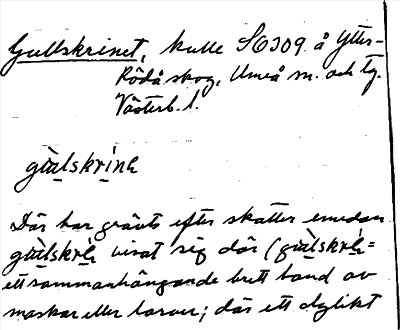 Gullskrinet, kulle SO309 å Ytter-
Rödå skog, Umeå sn. och tg.
Västerb. l.
Där har grävts efter skatter emedan
visat sig där (
ett sammanhängande brett band av
maskar eller larver; där ett dylikt